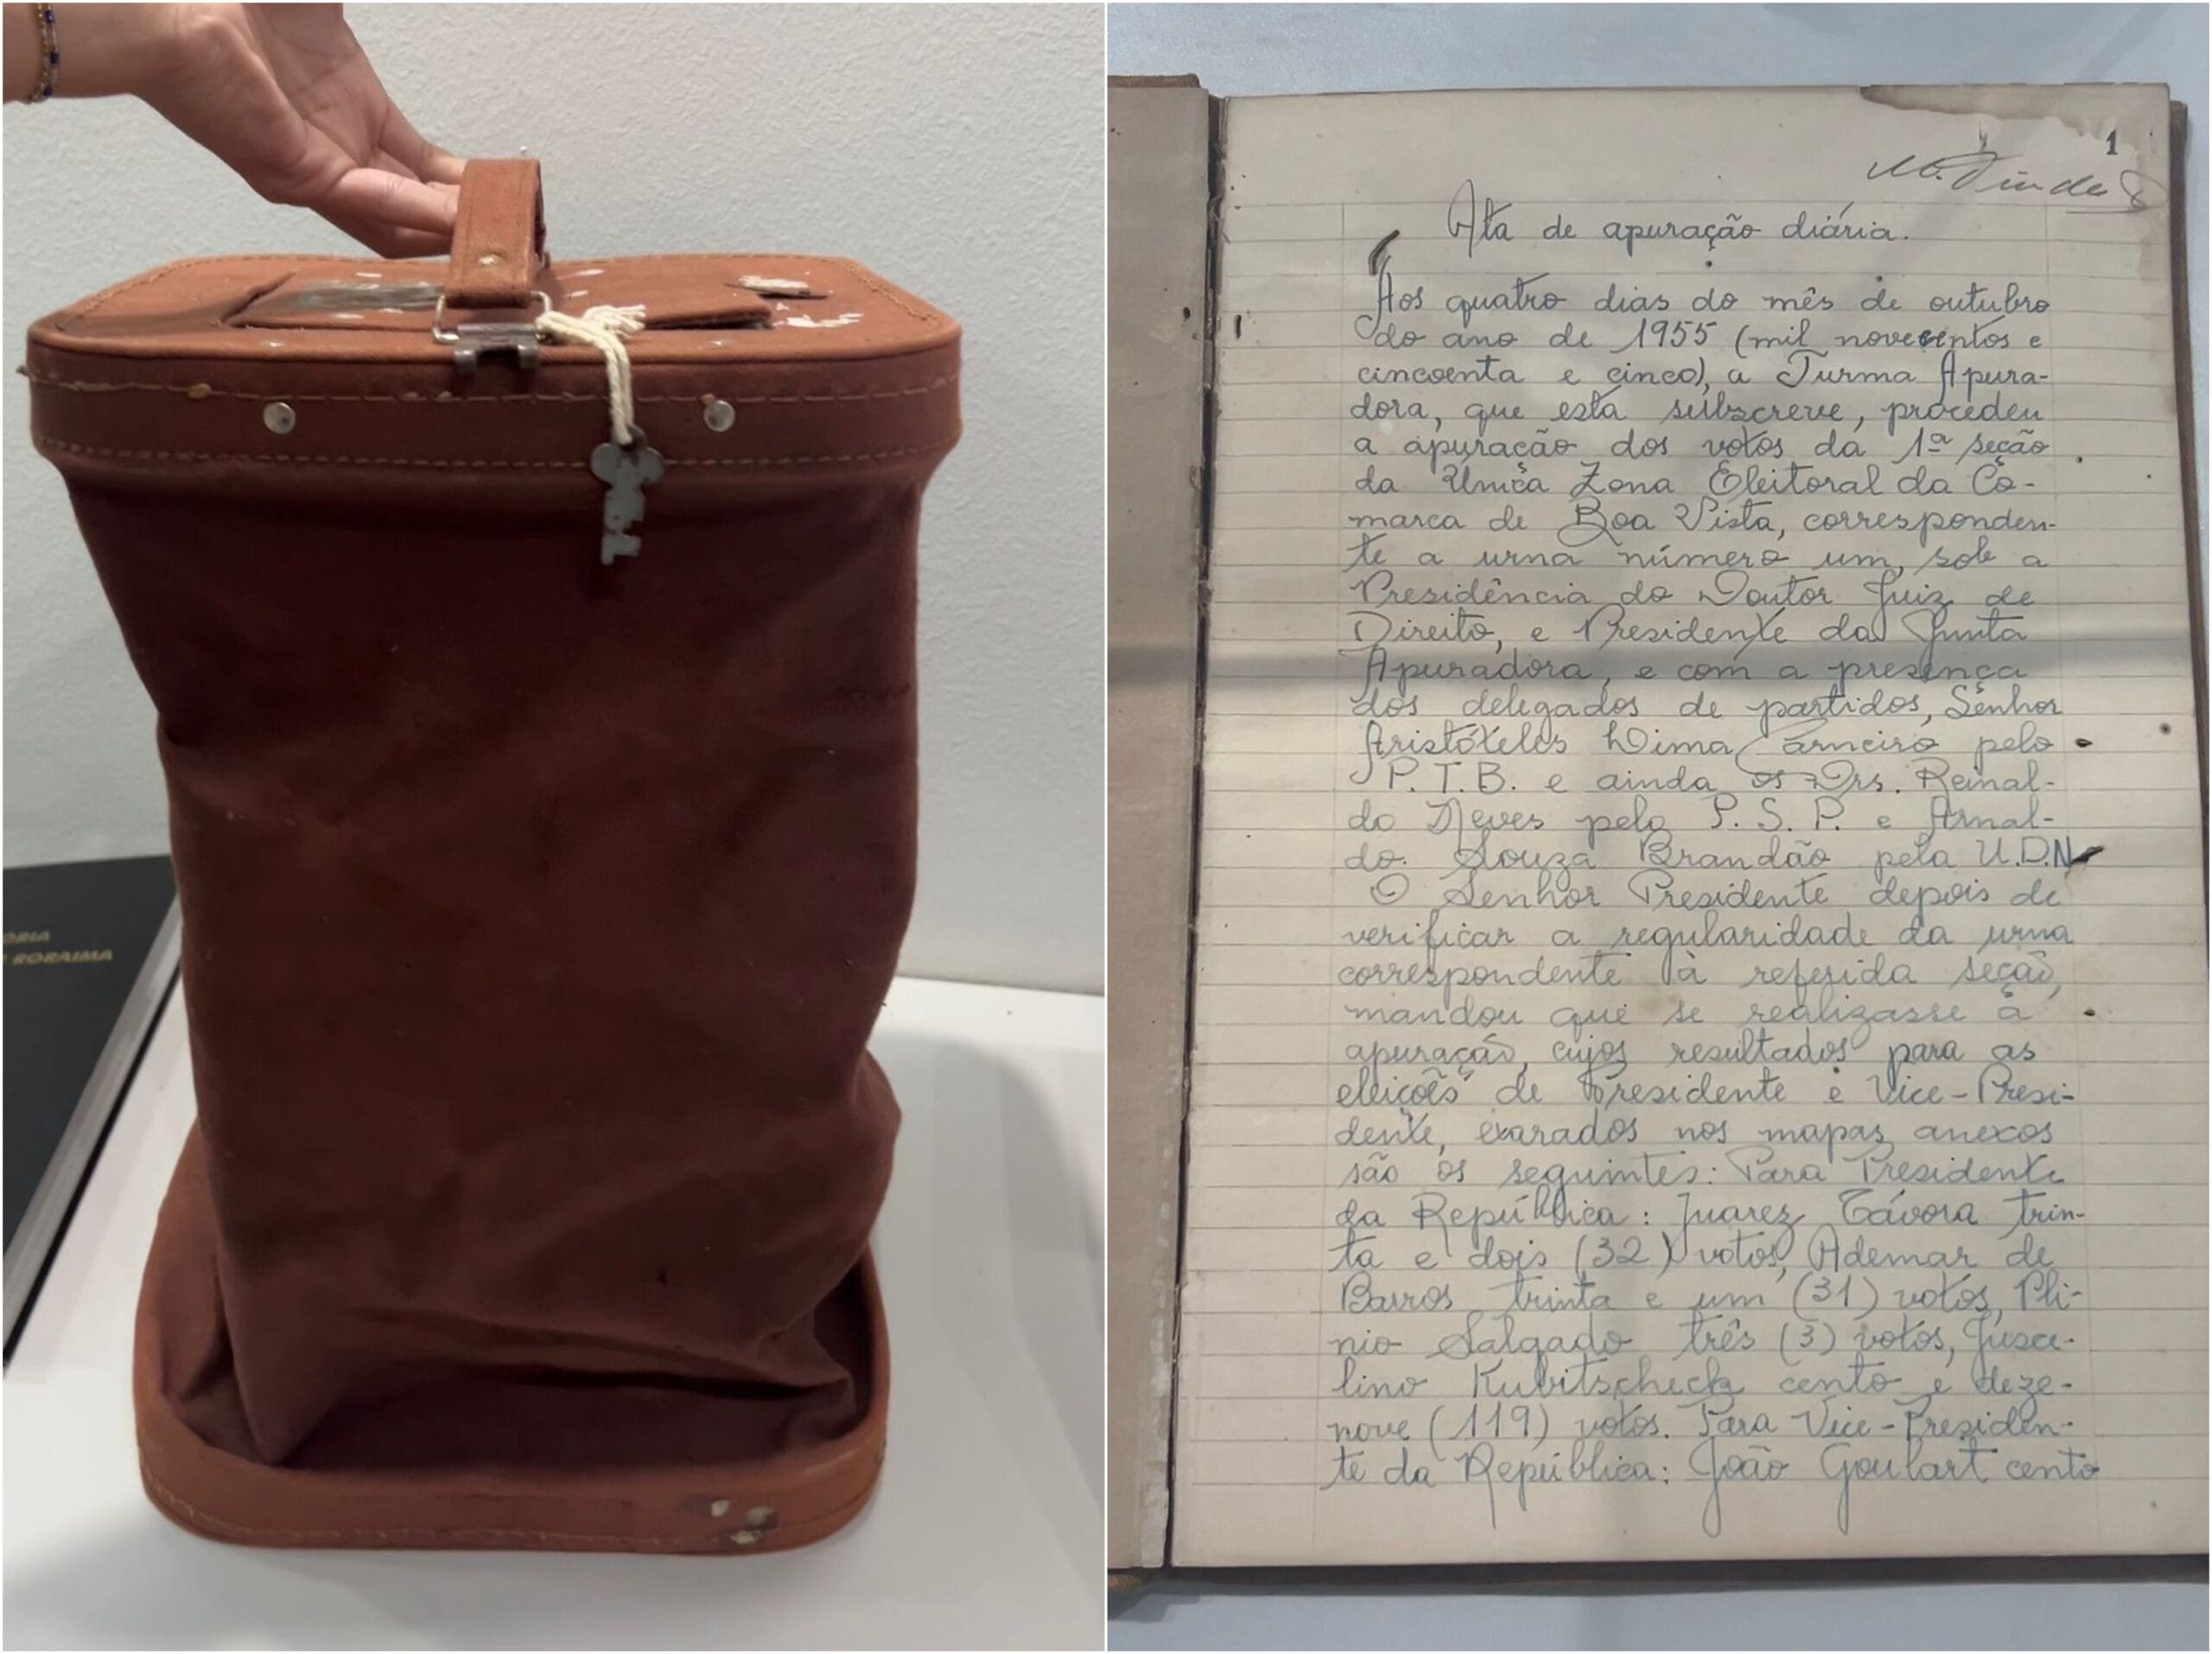 ÓRIA
RORAIMA
1
Ata de apuração diária.
Aos quatro dias do mês de outubro
do ano de 1955 (mil novecentos e
cincoenta e cinco), a Turma Apura-
dora, que esta subscreve, procedeu
a apuração dos votos da 1ª seção
da Única Zona Eleitoral da Co-
marca de Boa Vista, corresponden-
te a urna número um, sob a
Presidência do Doutor Juiz de
Direito, e Presidente da Junta
Apuradora, e com a presença
dos delegados de partidos, Senhor
Aristóteles Lima Carneiro pelo
P.T.B. e ainda os Drs. Reinal-
do Neves pelo P.S.P. e Arnal-
do Souza Brandão pela U.D.N
O Senhor Presidente depois de
verificar a regularidade da urna
correspondente à referida seção,
mandou que se realizasse a
apuração, cujos resultados para as
eleições de Presidente e Vice-Presi-
dente, exarados nos mapas anexos
são os seguintes: Para Presidente
da República: Juarez Távora trin-
ta e dois (32) votos, Ademar de
Barros trinta e um (31) votos, Pli-
nio Salgado três (3) votos, Jusce-
lino Kubitscheck cento e deze-
nove (119) votos. Para Vice-Presiden-
te da República: João Goulart cento